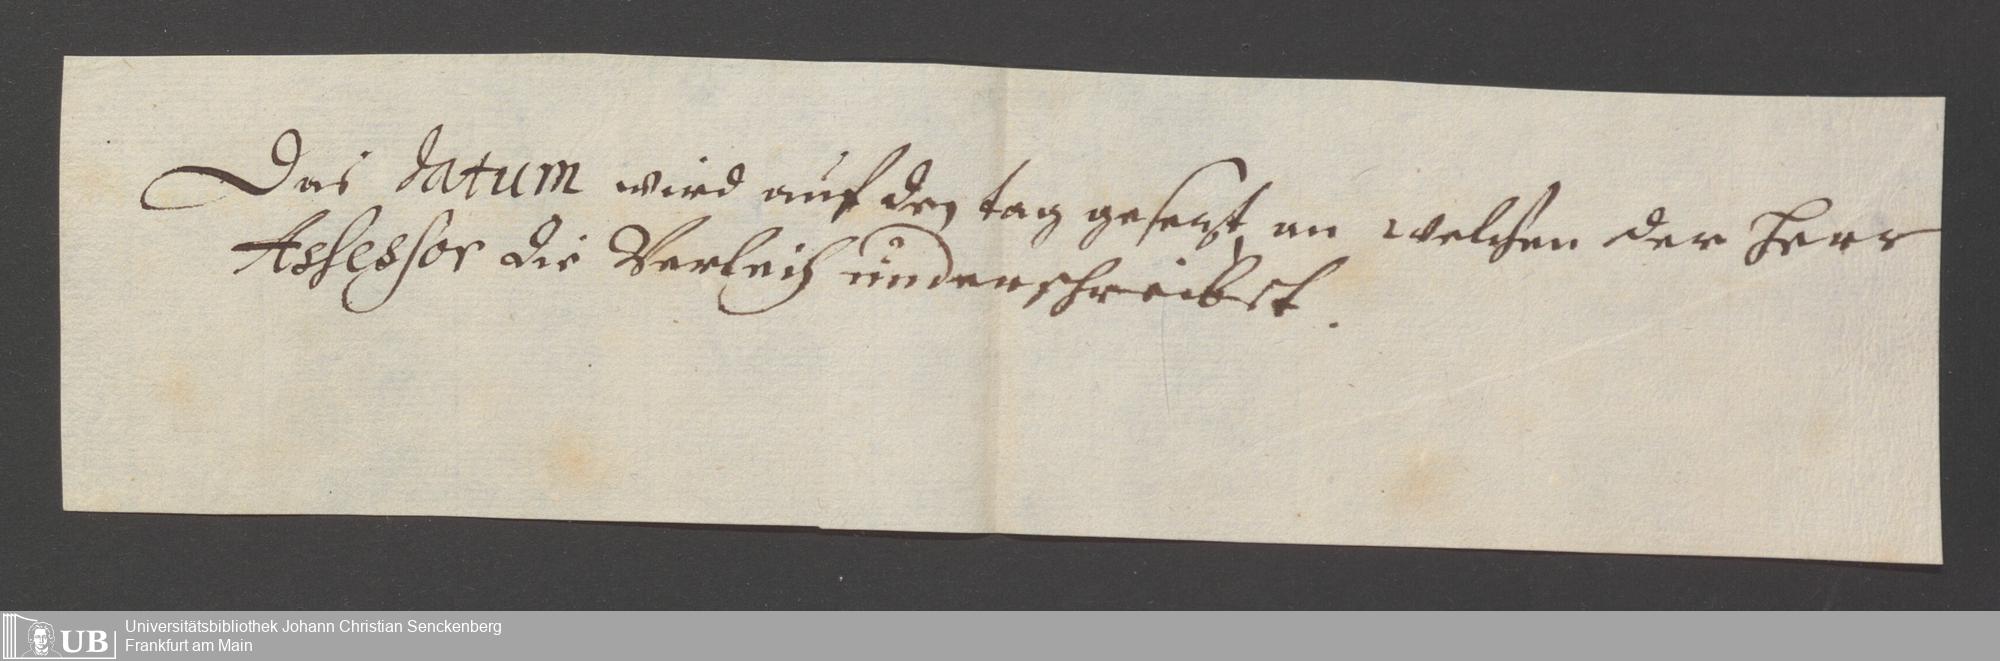 Das datum wird auf den tag gesetzt, an welchen der Herr
Assessor die Verleih underschreibet.
Universitätsbibliothek Johann Christian Senckenberg
Frankfurt am Main
UB